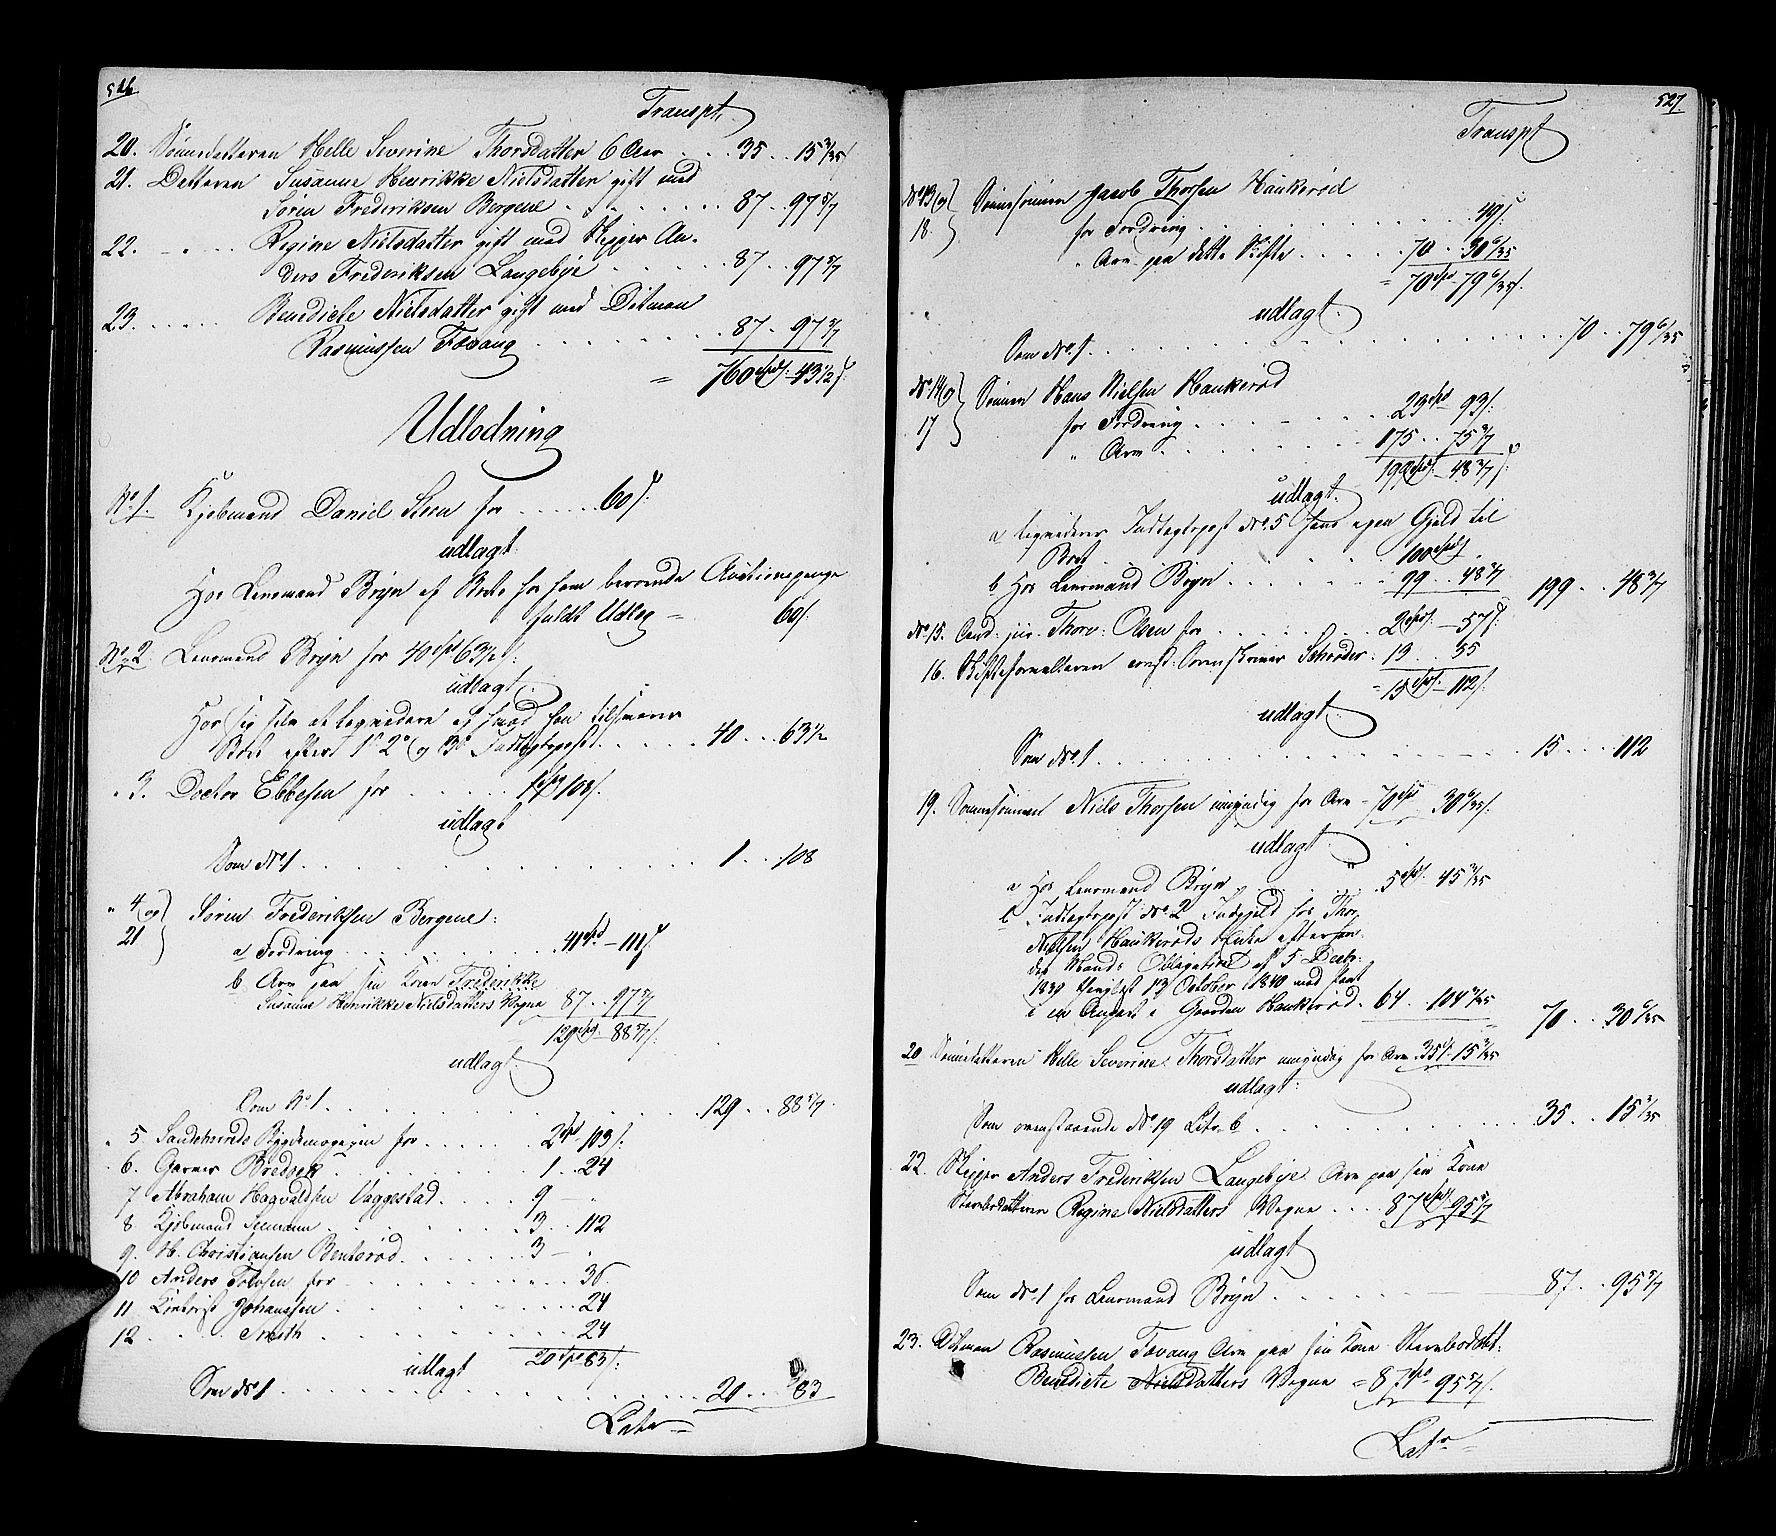 526
Transpt.
20. Sønnedatteren Helle Severine Thorsdatter 6 Aar . . . 35 . . 15 3/35
21. Datteren Susanne Henrikke Nielsdatter gift med
Søren Frederiksen Bergene . . . . . . . . 87 . 97 5/7
22. - . . . . Regine Nielsdatter gift med Skipper An-
ders Frederiksen Langebye . . . . . . 87 . . 97 5/7
23. . . . . . . Benedicte Nielsdatter gift med Ditman
Rasmussen Fævang . . . . . . . . . 87 . 97 5/7
= 760 Spd: 43 1/2 ß:
Udlodning
No 1. Kjøbmand Daniel Steen for . . . . . . 60 ß:
udlagt
Hos Lensmand Bryn af Boets hos ham beroende Auctionspenge
fuldt Udlæg = 60 ß.
No 2. Lensmand Bryn for 40 Spd 63 1/2 ß:
udlagt
Hos sig selv at liqvidere af hvad han tilsvarer
Boet efter 1ste 2de og 13de Indtægtspost . . . . . 40 . . . 63 1/2
" 3. Doctor Ebbesen for . . . . . . 1 Spd 108 ß.
udlagt
Som No 1 . . . . . . . . . . 1 . . . 108
" 4 og
21 } Søren Frederiksen Bergene:
a Fordring . . . . . . . . . 41 Spd - 111 ß
b Arv paa sin Kone Frederikke
Susanne Henrikke Nielsdatters Vegne 87 . . 97 5/7
129 Spd - 88 5/7 ß:
udlagt
Som No 1 . . . . . . . . . . . 129 . . 88 5/7.
" 5. Sandeherreds Bygdemagazin for . . . . . 2 Spd 103 ß:
6. Garver Bredsek . . . . . . . . 1 . . 24
7 Abraham Hagvaldsen Vaggestad . . . . . 9 - "
8 Kjøbmand Seemann . . . . . . . . 3 . . 112
9. H. Christiansen Bentsrød . . . . . . 3 - .
10 Anders Tolvsen for . . . . . . . . " . . 36.
11 Kantorist Johanssen . . . . . . . . . . 24
12 . . . . Smith . . . . . . . . . . . 24
20 Spd 83 ß:
udlagt
Som No 1 . . . . . . . . . . . 20 . . . 83
Latr=
527.
Transpt
No 13 og
18. } Sønnesønnen Jacob Thorsen Haukerød
for Fordring . . . . . . . . . . 49 ß
" Arv paa dette Skifte . . . . . 70 . . 30 6/35
= 70 Spd - 79 6/35 ß.
udlagt.
Som No 1. . . . . . . . . . . . . . . . 70 . . 79 6/35
No 14 og
17 } Sønnen Hans Nielsen Haukerød
for Fordring . . . . . . . . 23 Spd 93 ß:
" Arv . . . . . . . . . 175 . . 75 3/7
199 Spd: 48 3/7 ß
udlagt.
a liqviderer Indtægtspost No 5 hans egen Gjeld til
Boet . . . . . . . . . 100 Spd .
b Hos Lensmand Bryn . . . . . . . 99 . . 48 3/7 199 . . 48 3/7
No 15. Cand: jur. Thorv: Olsen for . . . . . . . 2 Spd: - 57 ß:
16. Skifteforvalteren const: Sorenskriver Schrøder: 13 . . 55
= 15 Spd: - 112 ß:
udlagt.
Som No 1 . . . . . . . . . . . . . . 15 . . . 112
19. Sønnesønnen Niels Thorsen umyndig for Arv = 70 Spd 30 6/35 ß.
udlagt
a Hos Lensmand Bryn . . . . . . . 5 Spd: 45 3/35
b Indtægtspost No 2 Indgjeld hos Thor
Nielsen Haukerøds Enke efter hen-
des Mands Obligation af 5 Decbr:
1839 thinglæst 13 October 1840 med Pant
i en Anpart i Gaarden Haukerød. 64 . . 104 3/35 70 . . 30 6/35
20 Sønnedatteren Helle Severine Thorsdatter umyndig for Arv 35 Spd: 15 3/35
udlagt:
Som ovenstaaende No 19 Litr. b . . . . . . . . . 35 . . . 15 3/35
22. Skipper Anders Frederiksen Langebye Arv paa sin Kone
Stervbodatteren Regine Nielsdatters Vegne . . . . 87 Spd 95 5/7
udlagt
Som No 1 hos Lensmand Bryn . . . . . . 87 . . 95 5/7
23. Ditman Rasmussen Fævang Arv paa sin Kone Stervbodatt:
Benedicte Nielsdatters Vegne = 87 Spd 95 5/7.
Latr=